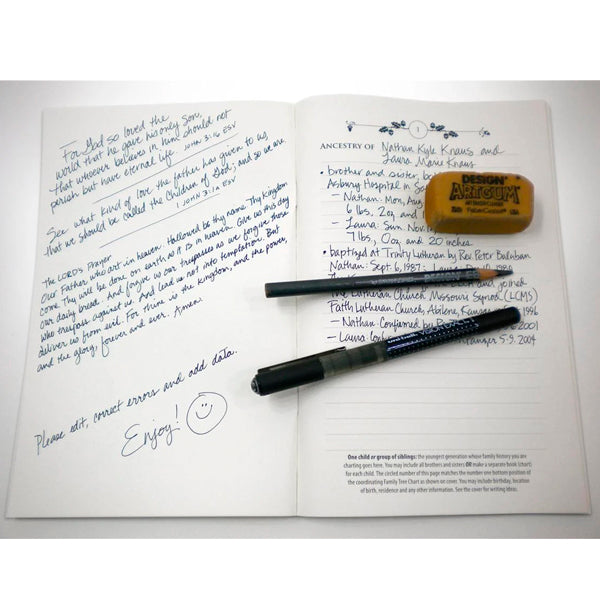 For God so loved the
world that he gave his only Son,
that whoever believes in him should not
perish but have eternal life. JOHN 3:16 ESV
See what kind of love the father has given to us,
that we should be called the children of God; and so we are.
1 JOHN 3:1a ESV
The LORDS Prayer
Our Father, who art in heaven. Hallowed be thy name. Thy Kingdom
come. Thy will be done on earth as it is in heaven. Give us this day
our daily bread. And forgive us our trespasses as we forgive those
who trespass against us. And lead us not into temptation. But
deliver us from evil. For thine is the kingdom, and the power,
and the glory, forever and ever. Amen.
Please edit, correct errors and add data.
Enjoy!
1
ANCESTRY OF Nathan Kyle Knaus and
Laura Marie Knaus
• brother and sister, bo
Asbury Hospital in S
- Nathan: Mon, Aug
6 lbs, 2oz and
- Laura: Sun. Nov
7 lbs, 0oz and 20 inches.
• baptized at Trinity Lutheran by Rev. Peter Baluban
Nathan: Sept. 6, 1987;
and joined
The Lutheran Church Missouri Synod (LCMS)
Faith Lutheran Church, Abilene, Kansas 1996
- Nathan: Confirmed by 2001
- Laura: 5-9-2004
DESIGN
ARTGUM
FaberCastell
One child or group of siblings: the youngest generation whose family history you are
charting goes here. You may include all brothers and sisters OR make a separate book (chart)
for each child. The circled number of this page matches the number one bottom position of
the coordinating Family Tree Chart as shown on cover. You may include birthday, location
of birth, residence and any other information. See the cover for writing ideas.